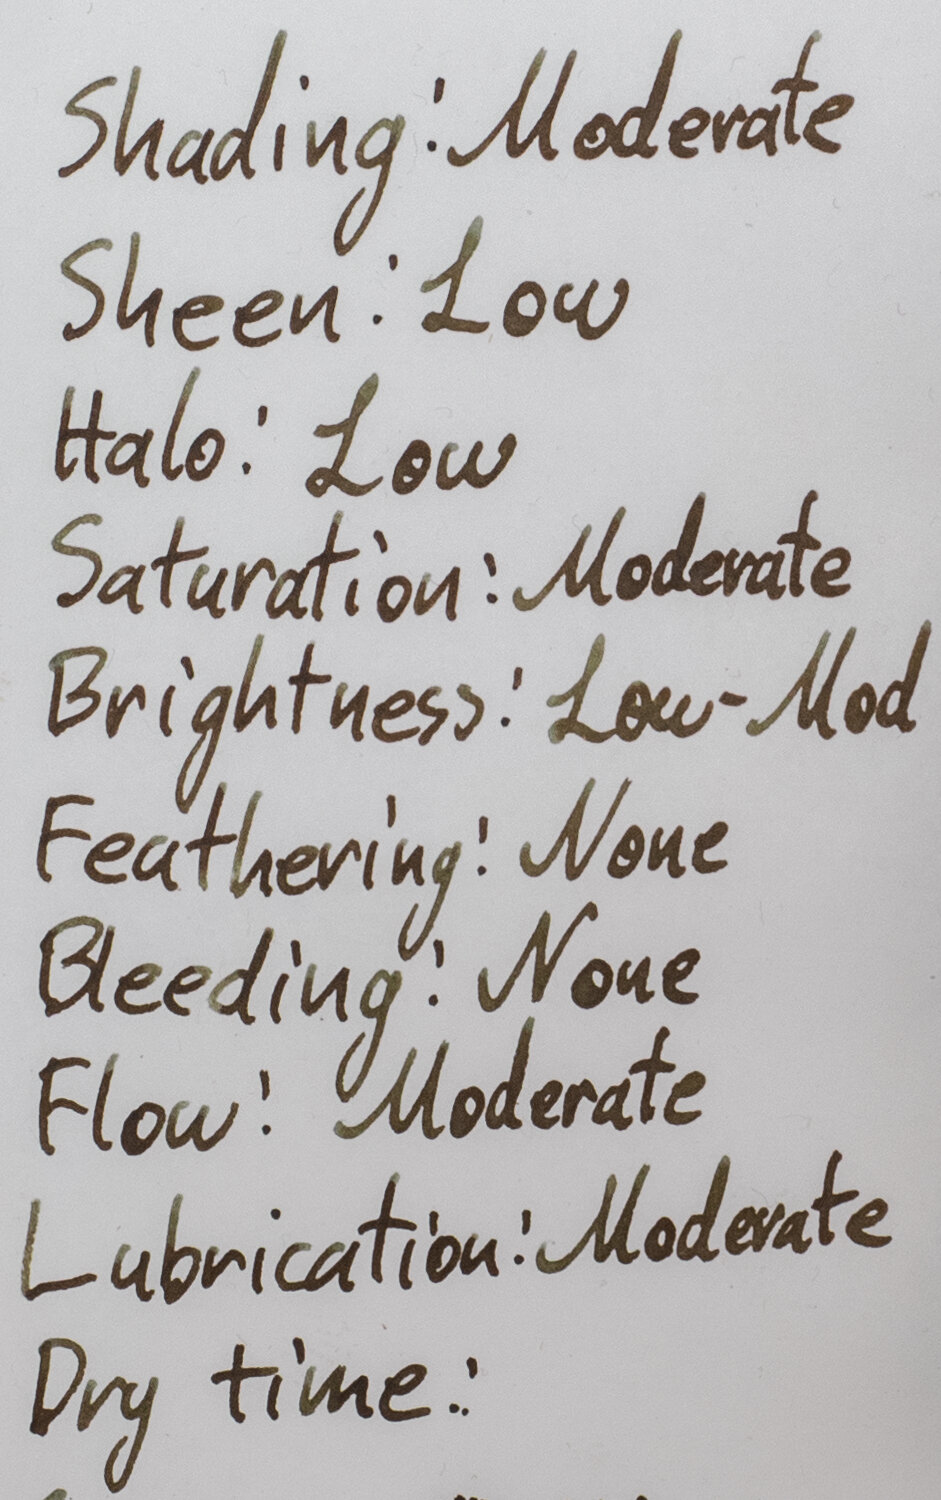 Shading: Moderate
Sheen: Low
Halo: Low
Saturation: Moderate
Brightness: Low-Mod
Feathering: None
Bleeding: None
Flow: Moderate
Lubrication: Moderate
Dry time: